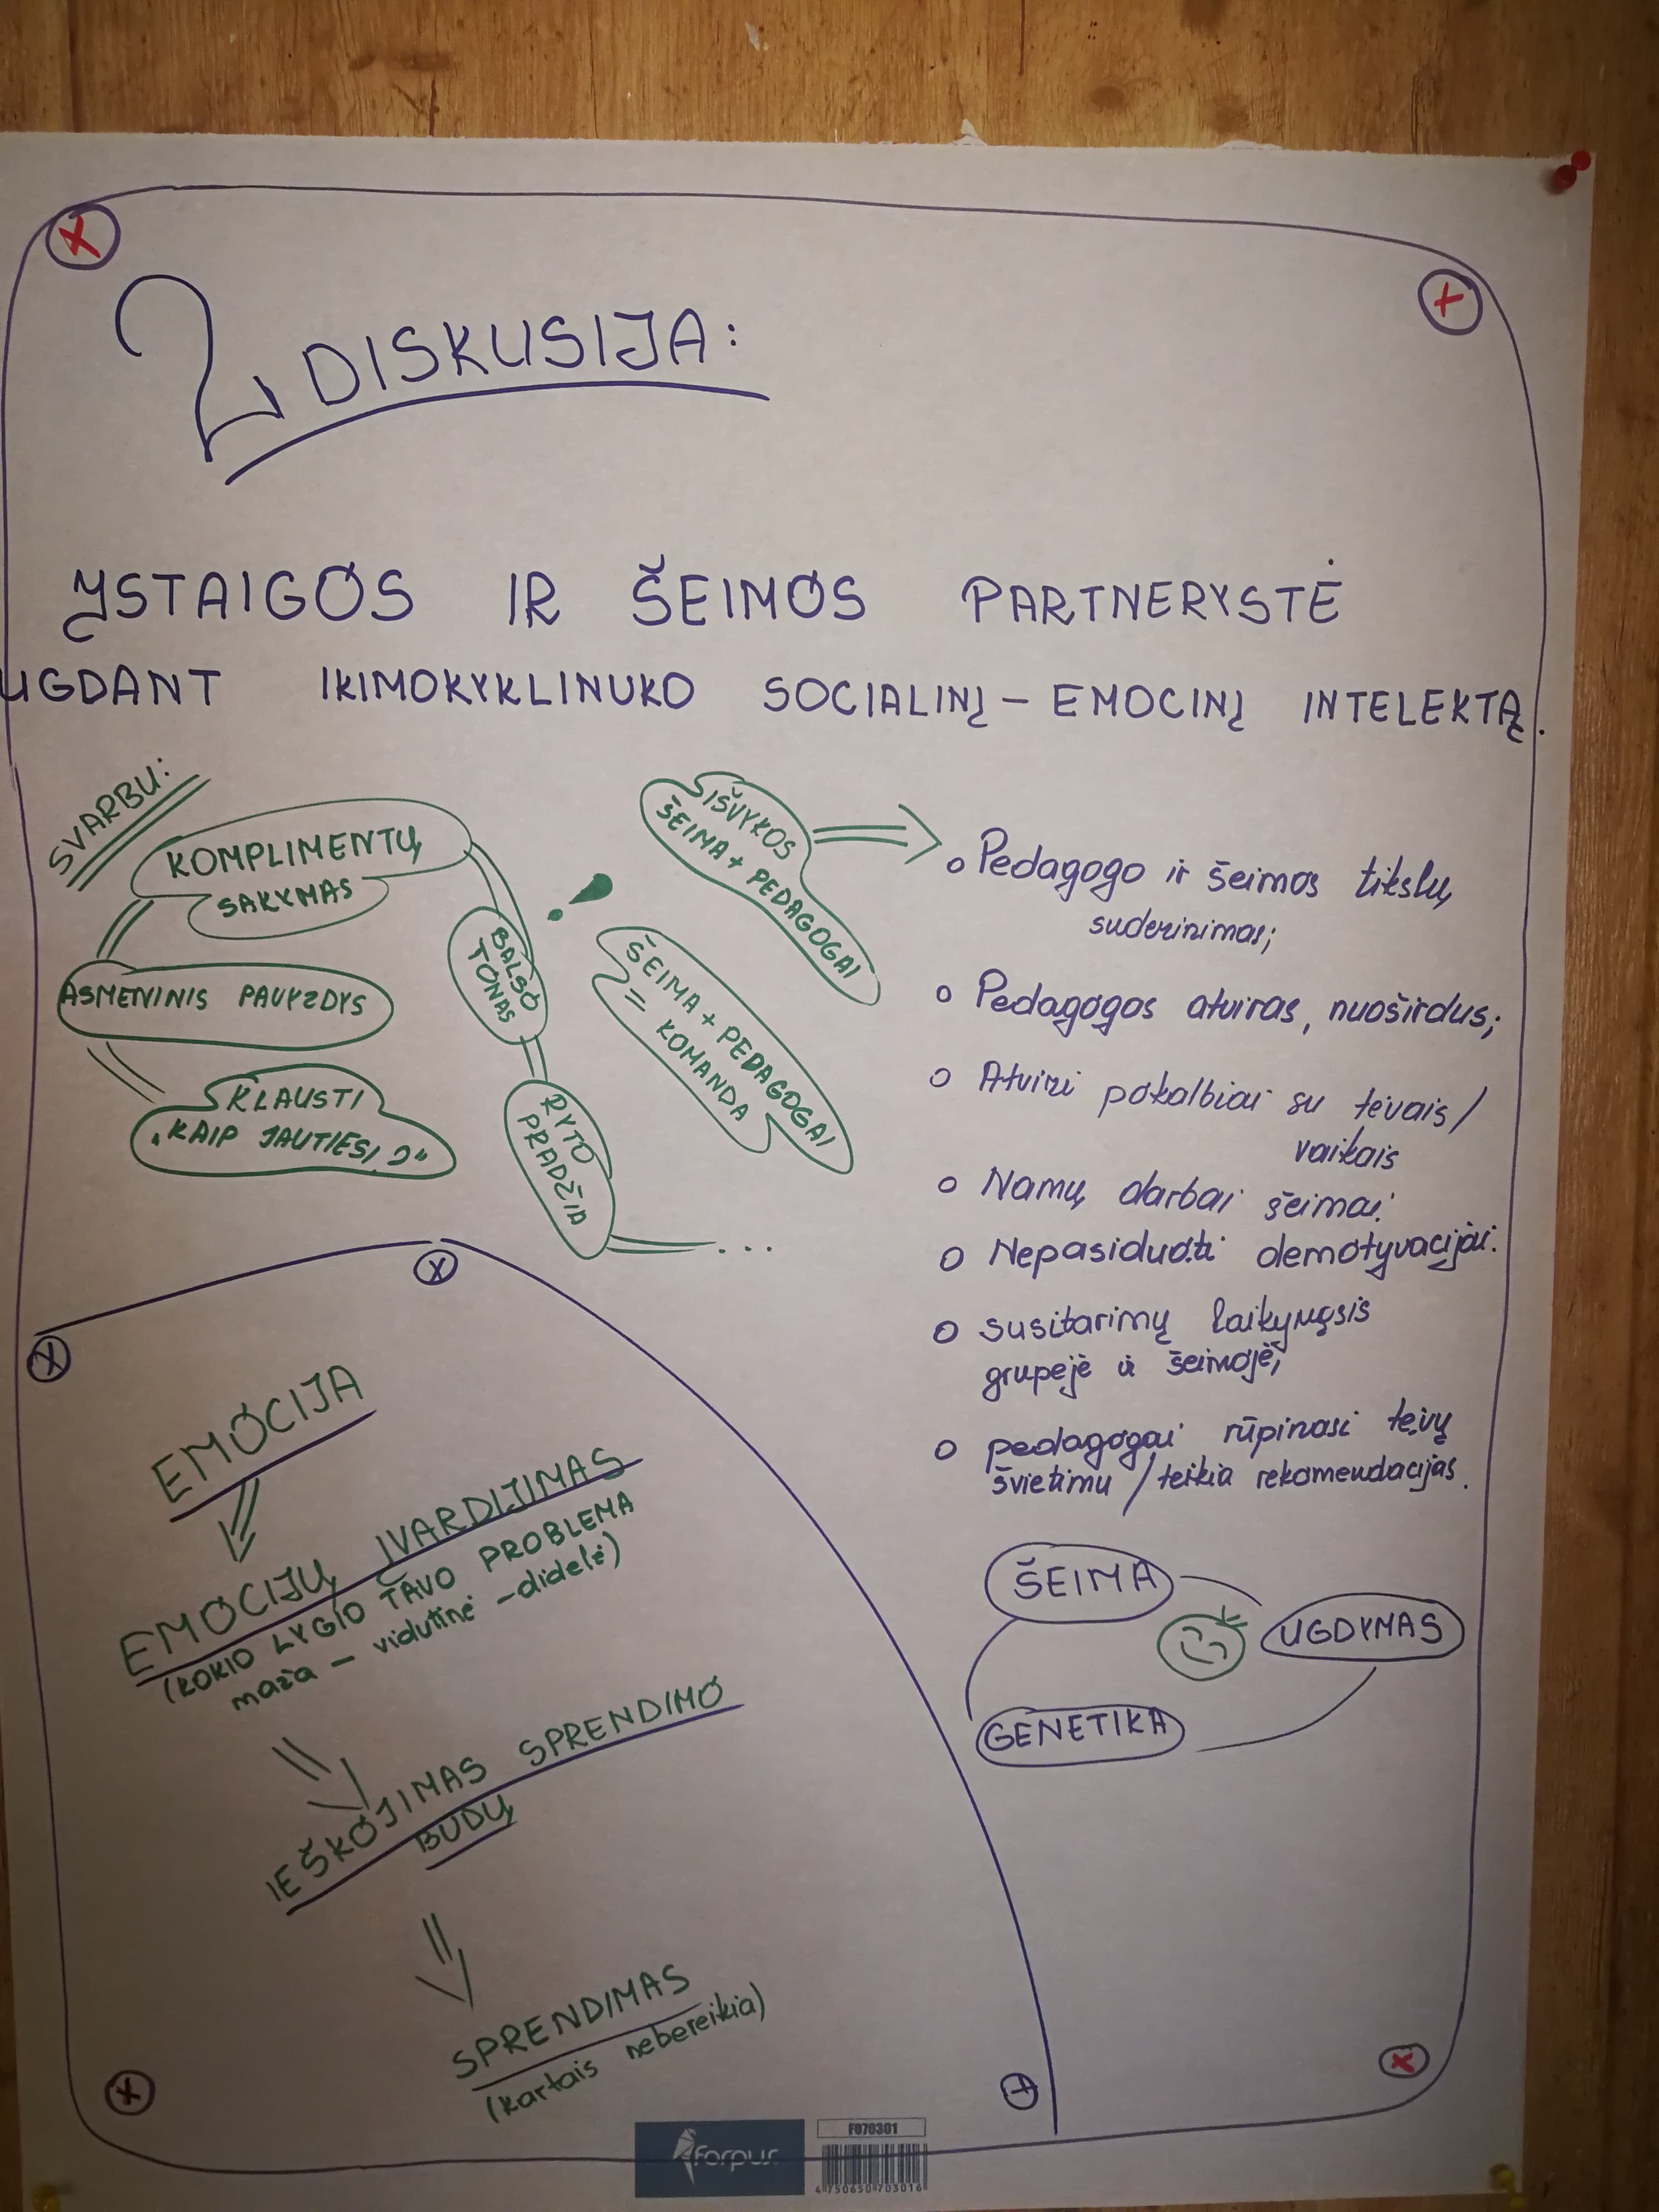 2 DISKUSIJA:
ĮSTAIGOS IR ŠEIMOS PARTNERYSTĖ
UGDANT IKIMOKYKLINUKO SOCIALINĮ - EMOCINĮ INTELEKTĄ.
SVARBU:
KOMPLIMENTŲ
SAKYMAS
ASMENINIS PAVYZDYS
KLAUSTI
„KAIP JAUTIESI?"
BALSO
TONAS
RYTO
PRADŽIA
...
!
IŠVYKOS
ŠEIMA + PEDAGOGAI
ŠEIMA + PEDAGOGAI
= KOMANDA
Pedagogo ir šeimos tikslų
suderinimas;
Pedagogos atviras, nuoširdus;
Atviri pokalbiai su tėvais /
vaikais
Namų darbai šeimai.
Nepasiduoti demotyvacijai.
susitarimų laikymąsis
grupėje ir šeimoje;
pedagogai rūpinasi tėvų
švietimu / teikia rekomendacijas.
ŠEIMA
UGDYMAS
GENETIKA
EMOCIJA
EMOCIJŲ ĮVARDIJIMAS
(KOKIO LYGIO TAVO PROBLEMA
maža - vidutinė - didelė)
IEŠKOJIMAS SPRENDIMO
BUDŲ
SPRENDIMAS
(kartais nebereikia)
forpus
F070301
4750650703016